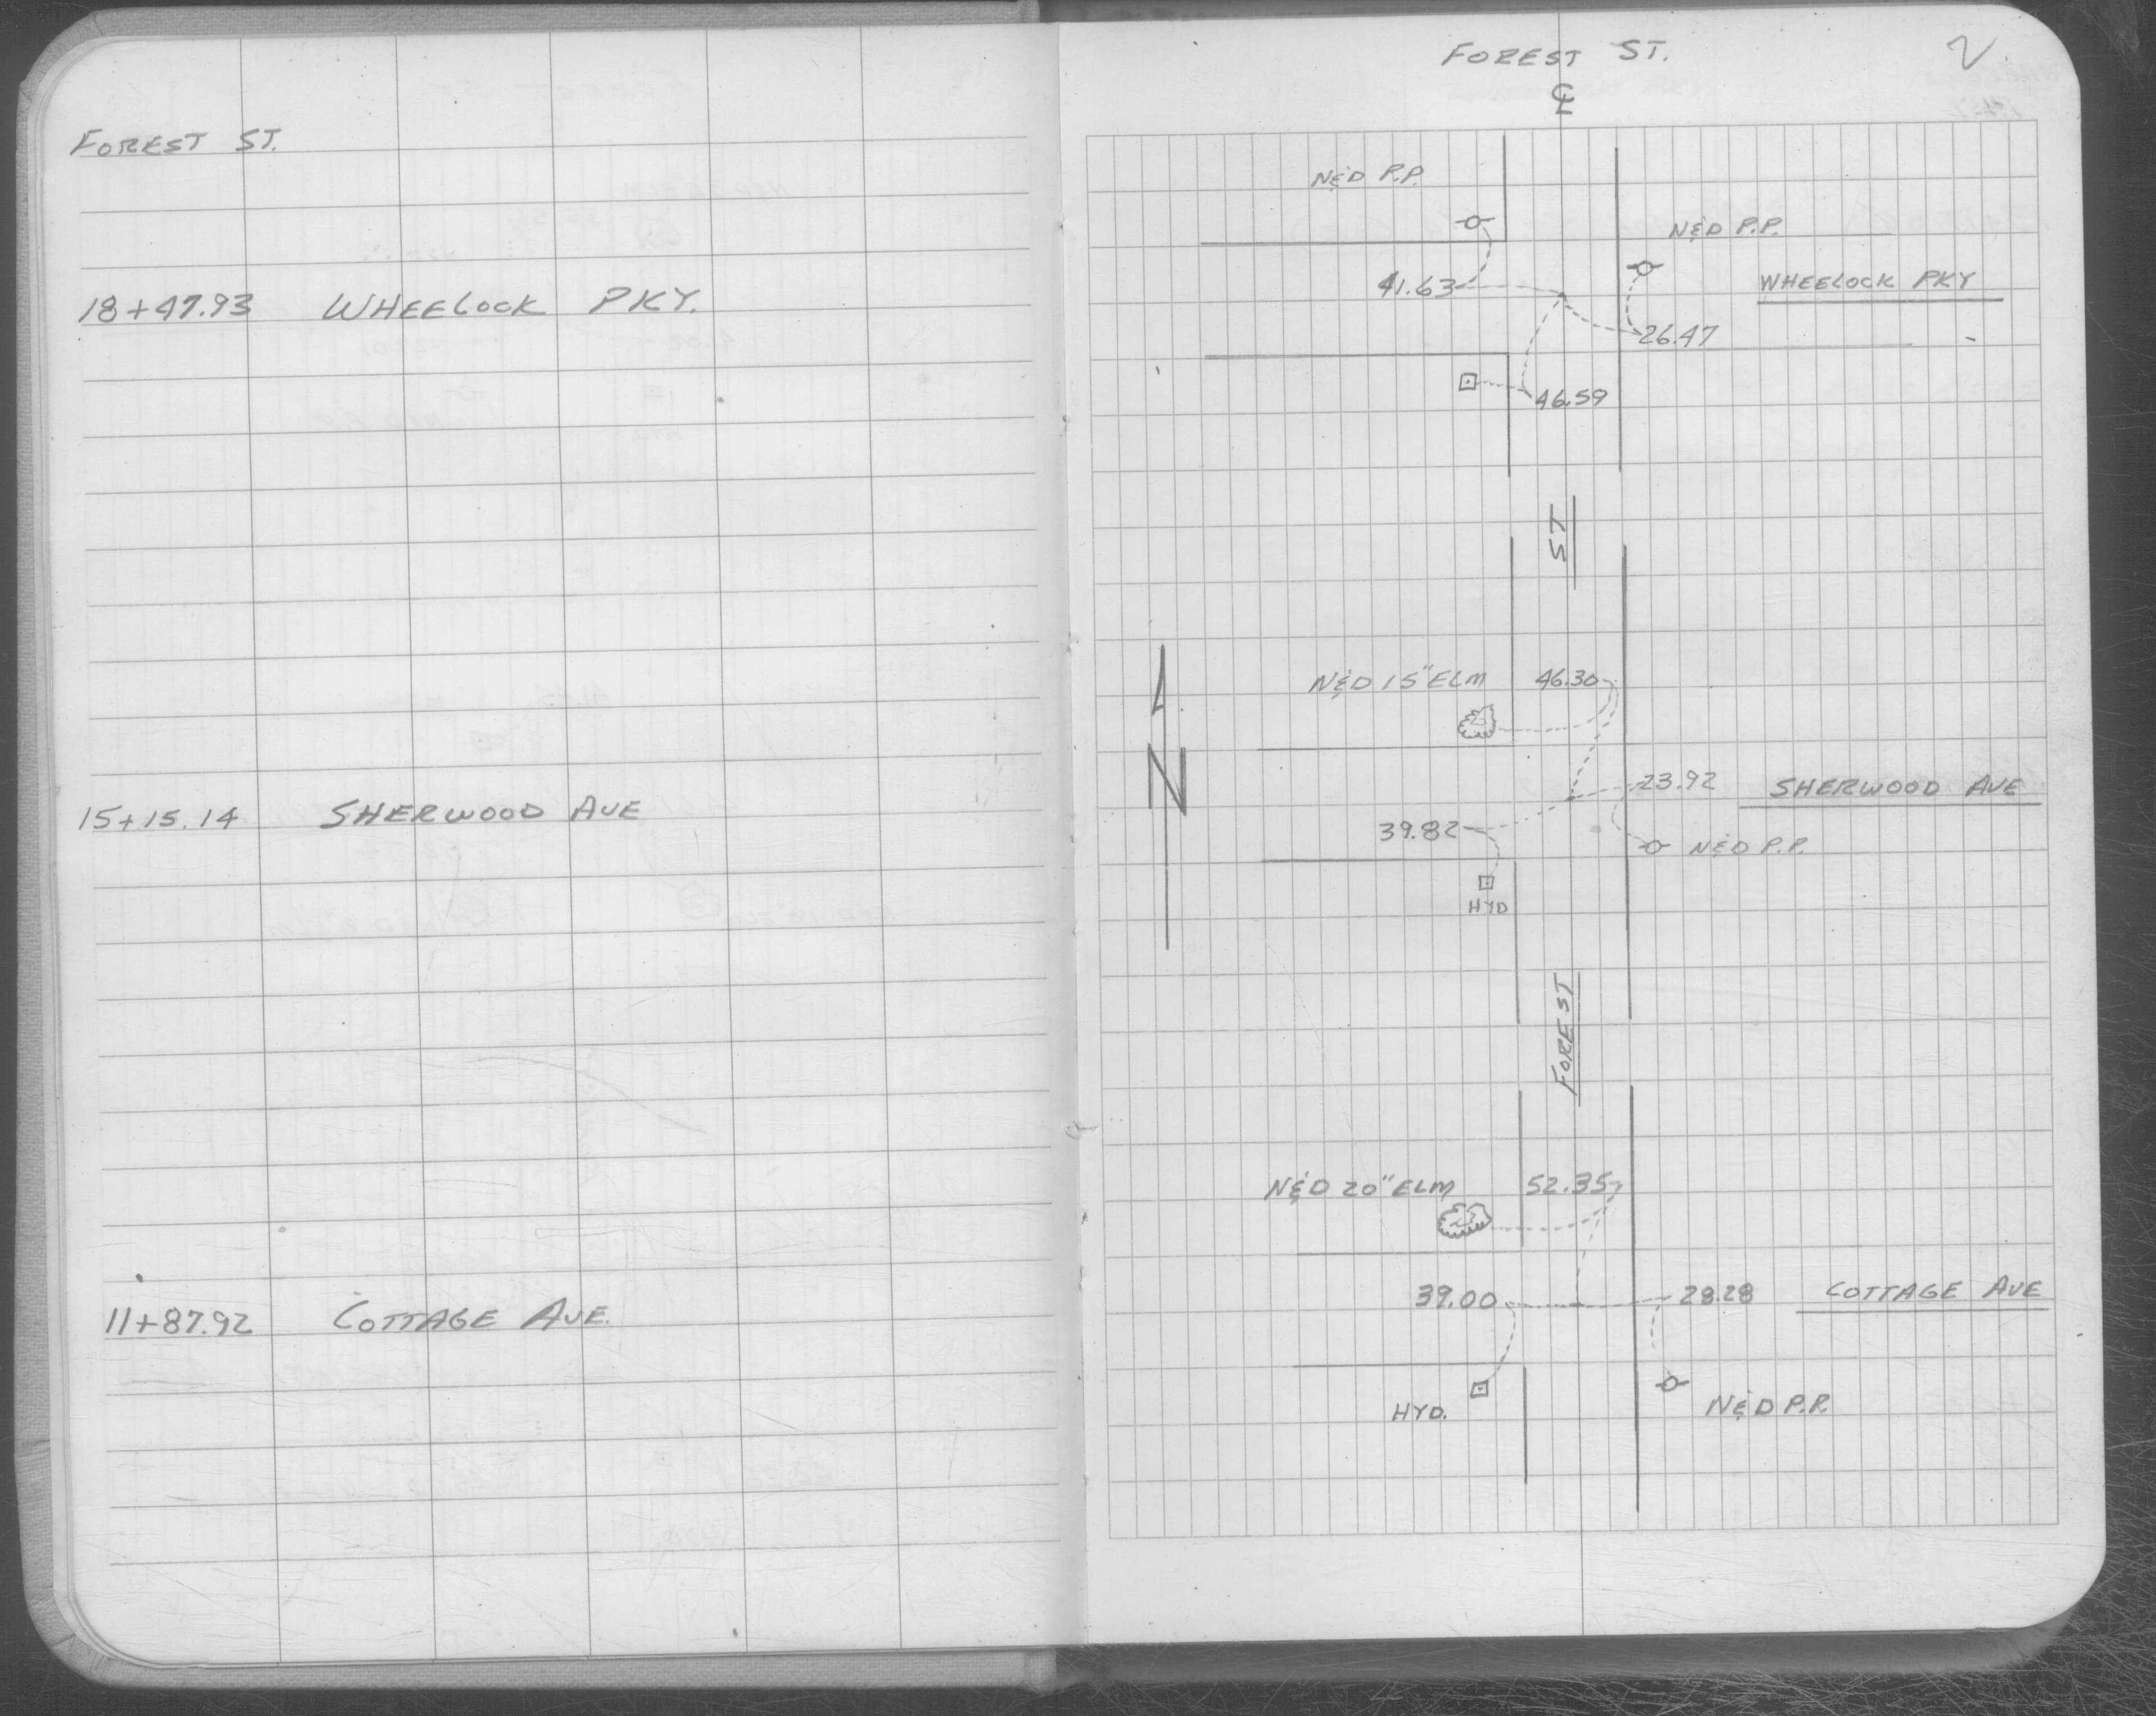 FOREST ST.
18+47.93 WHEELOCK PKY.
15+15.14 SHERWOOD AVE
11+87.92 COTTAGE AVE.
FOREST ST.
2
℄
N&D P.P.
N&D P.P.
41.63
WHEELOCK PKY
26.47
46.59
ST
N&D 15" ELM 46.30
N
23.92 SHERWOOD AVE
39.82
N&D P.P.
HYD
FOREST
N&D 20" ELM 52.35
39.00 28.28 COTTAGE AVE
HYD. N&D P.P.